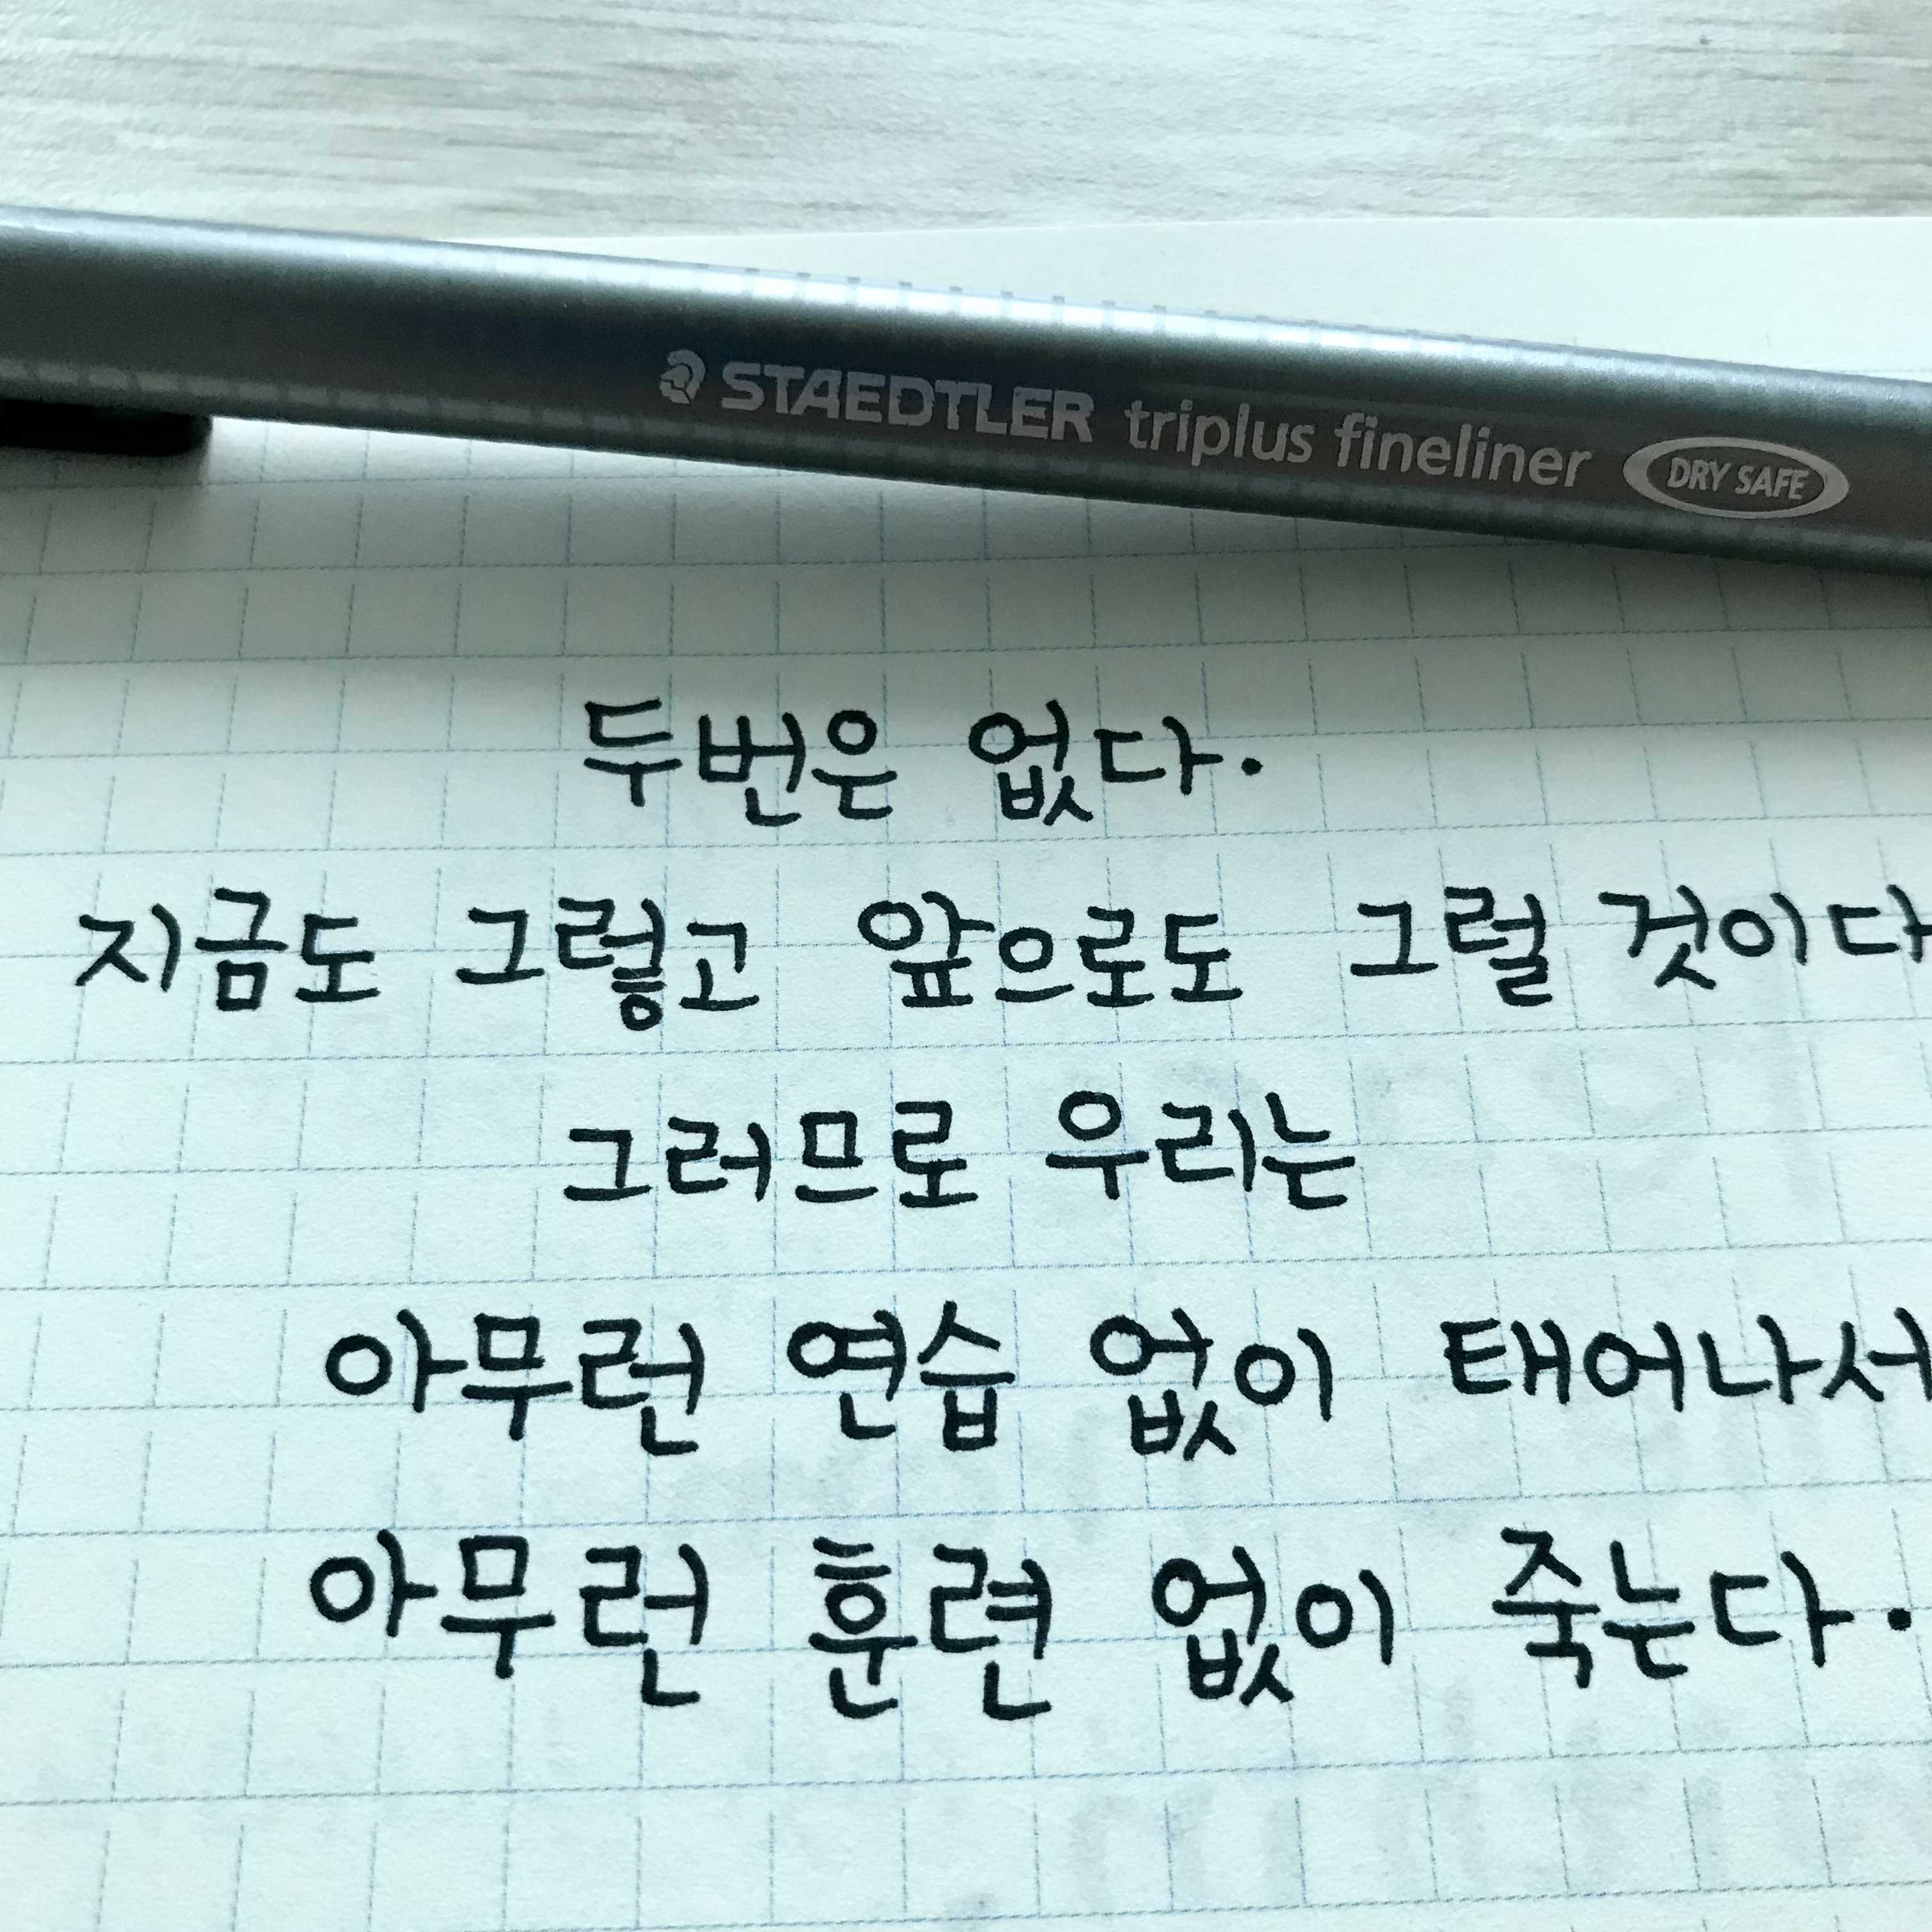 STAEDTLER triplus fineliner DRY SAFE
두번은 없다.
지금도 그렇고 앞으로도 그럴 것이다
그러므로 우리는
아무런 연습 없이 태어나서
아무런 훈련 없이 죽는다.